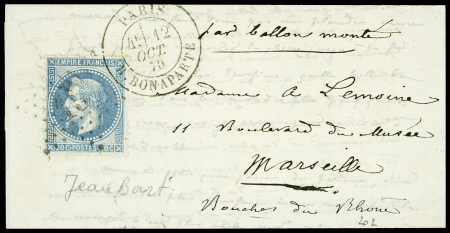 PARIS
12
OCT
70
R. BONAPARTE
par ballon monté
EMPIRE FRANÇAIS
20C POSTES 20C
Madame A Lemoine
11 Boulevard du Musée
Marseille
Bouches du Rhône
Jean Bart